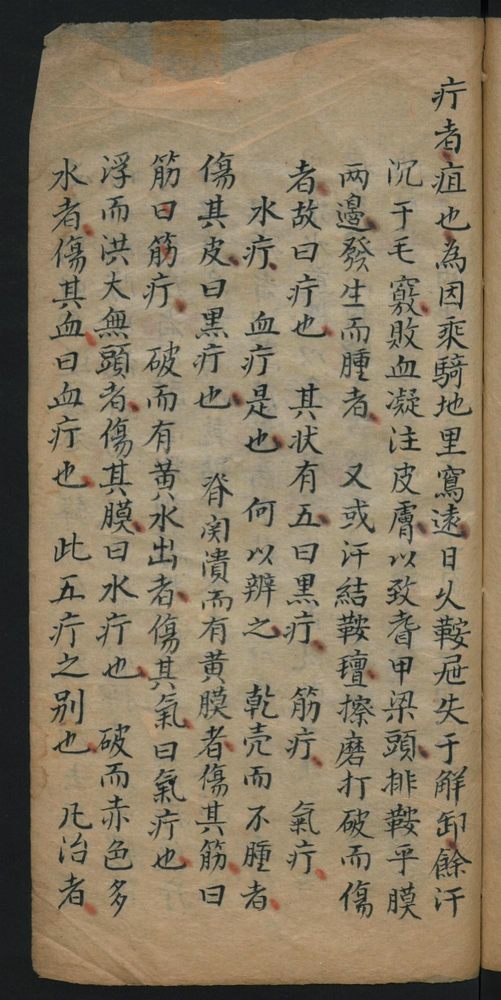 疔者疽也為因乘騎地里寫遠日久鞍屉失于解卸餘汗
沉于毛竅敗血凝注皮膚以致脊甲梁頭排鞍乎膜
两邊發生而腫者又或汗結鞍氊擦磨打破而傷
者故曰疔也其状有五曰黒疔筋疔氣疔
水疔血疔是也何以辨之乾壳而不腫者
傷其皮曰黒疔也脊関潰而有黄膜者傷其筋曰
筋曰筋疔破而有黄水出者傷其氣曰氣疔也
浮而洪大無頭者傷其膜曰水疔也破而赤色多
水者傷其血曰血疔也此五疔之别也凡治者